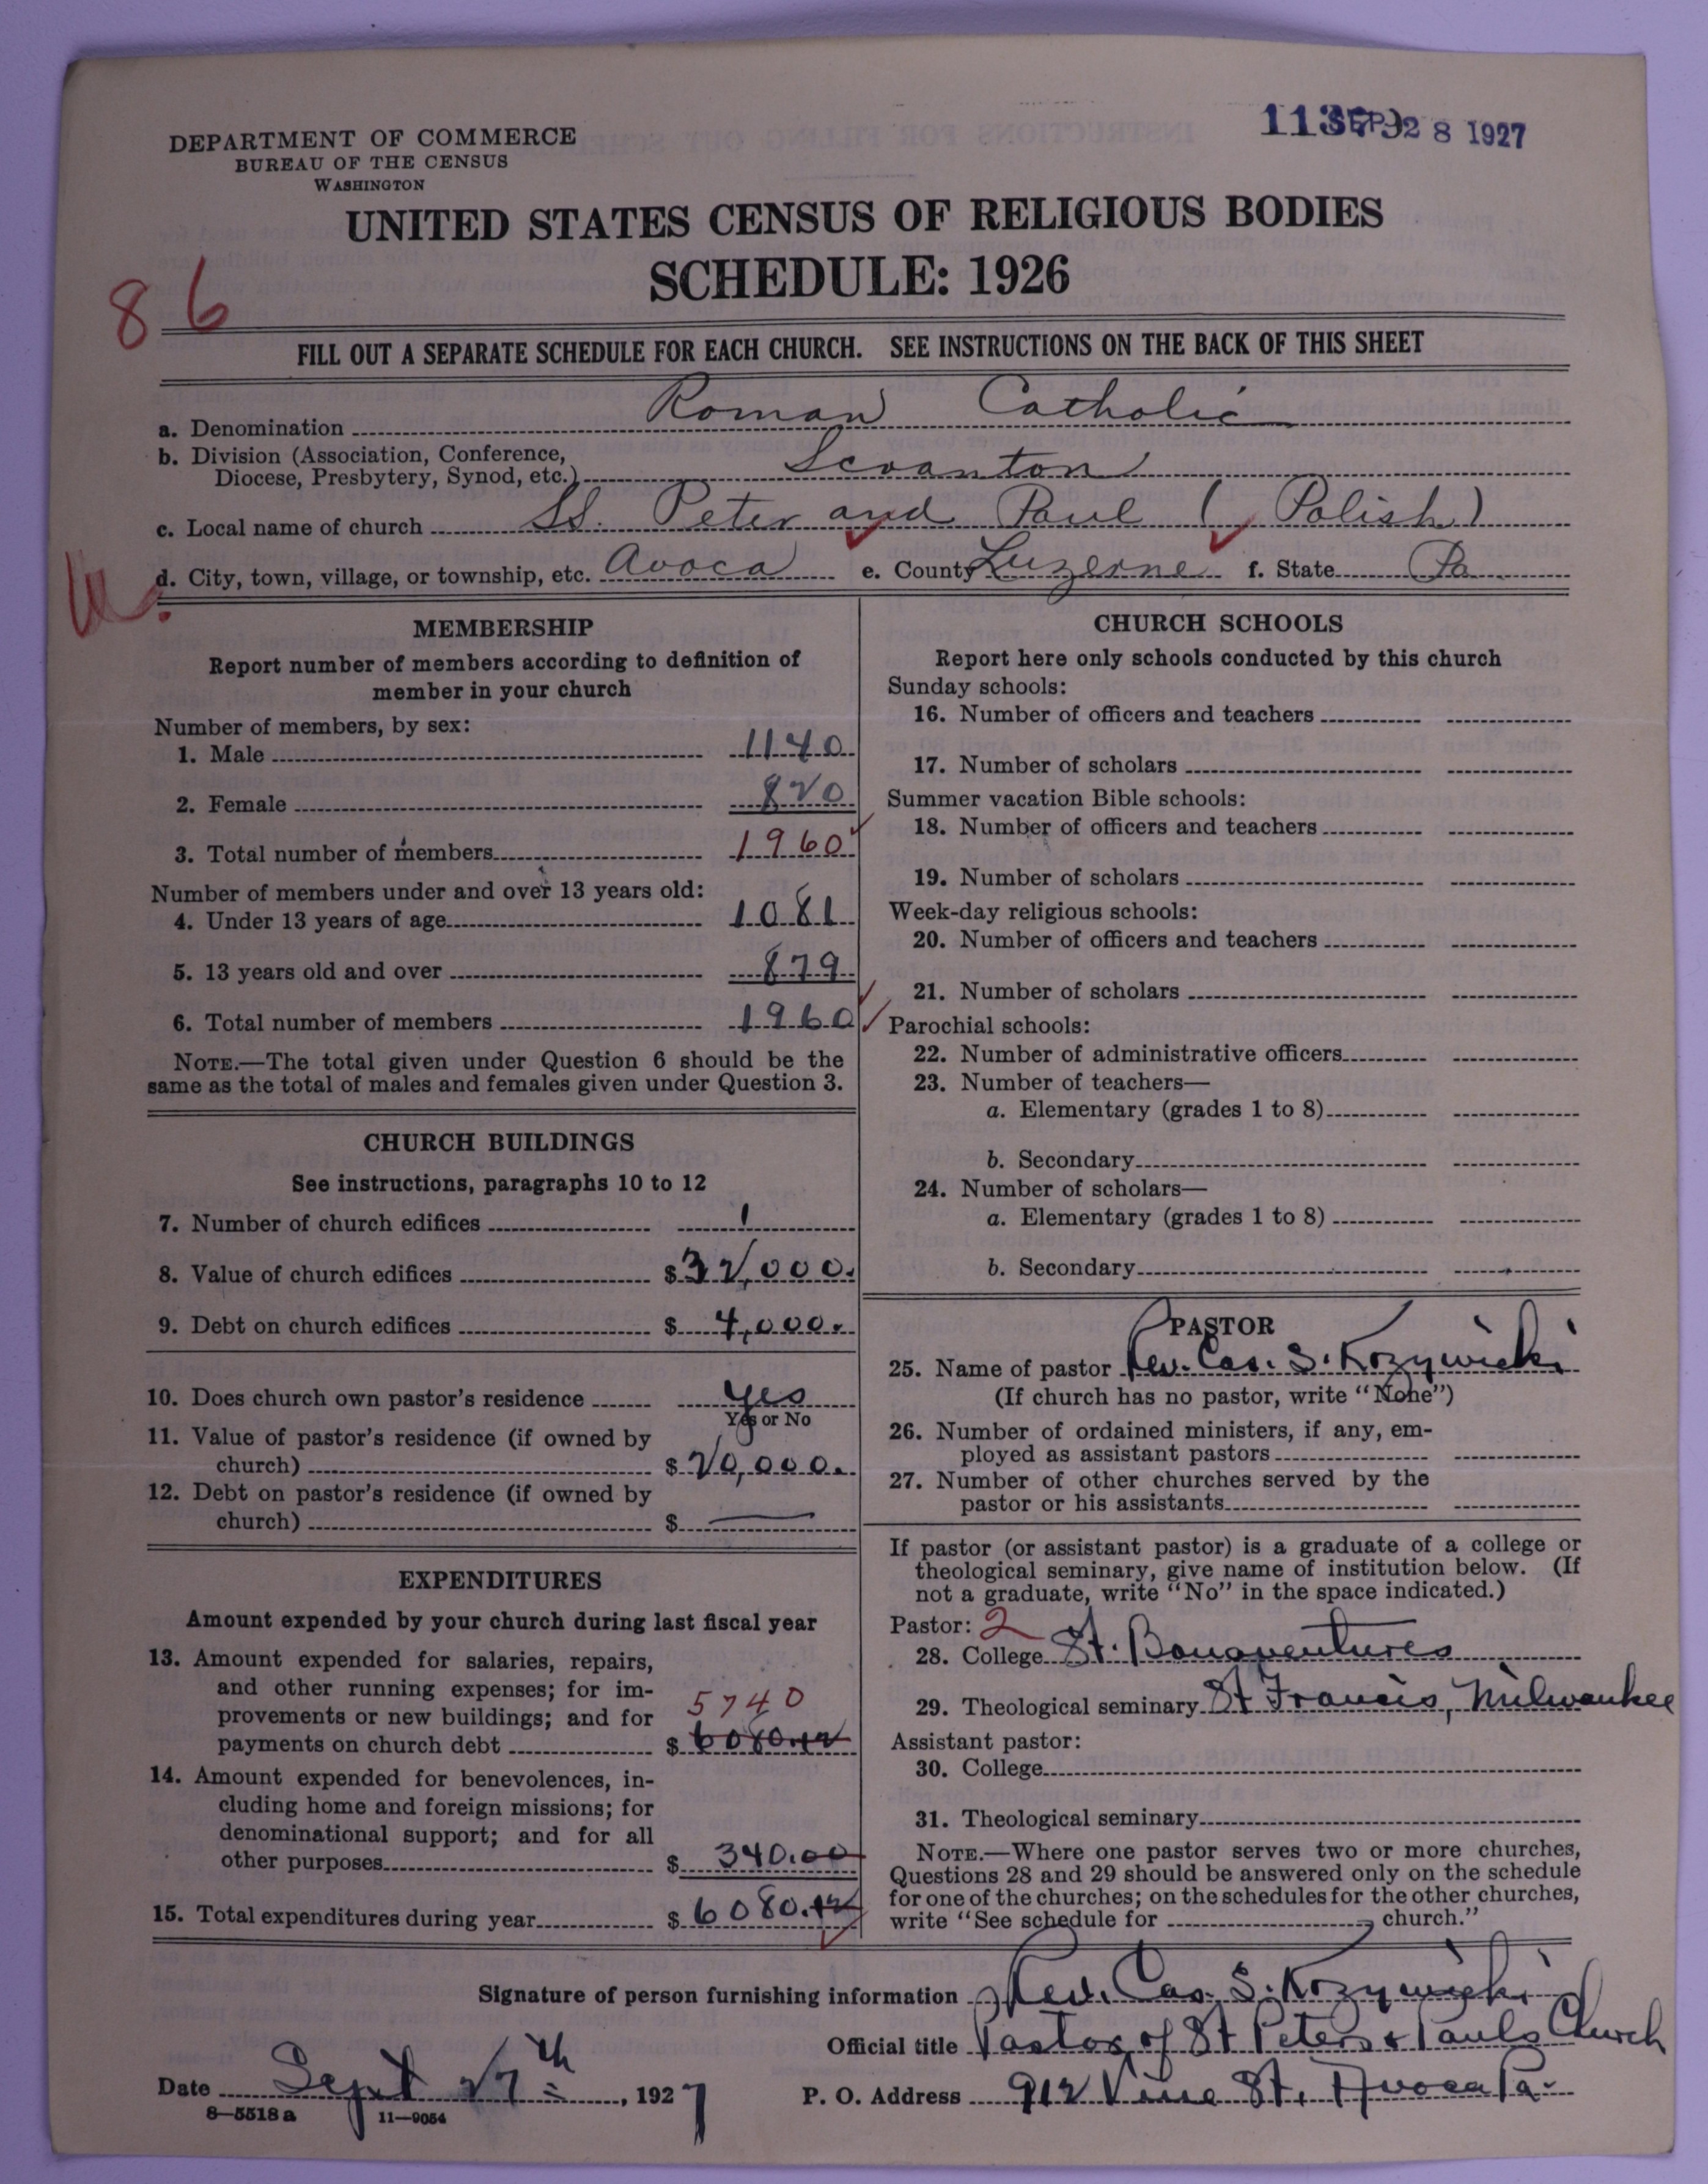 DEPARTMENT OF COMMERCE
BUREAU OF THE CENSUS
WASHINGTON
SEP 28 1927
UNITED STATES CENSUS OF RELIGIOUS BODIES
SCHEDULE: 1926
86
FILL OUT A SEPARATE SCHEDULE FOR EACH CHURCH. SEE INSTRUCTIONS ON THE BACK OF THIS SHEET
a. Denomination Roman Catholic
b. Division (Association, Conference,
Diocese, Presbytery, Synod, etc.) Scranton
c. Local name of church SS. Peter and Paul (Polish)
d. City, town, village, or township, etc. Avoca e. County Luzerne f. State Pa
MEMBERSHIP
Report number of members according to definition of
member in your church
Number of members, by sex:
1. Male 1140
2. Female 820
3. Total number of members 1960
Number of members under and over 13 years old:
4. Under 13 years of age 1081
5. 13 years old and over 879
6. Total number of members 1960
NOTE.—The total given under Question 6 should be the
same as the total of males and females given under Question 3.
CHURCH BUILDINGS
See instructions, paragraphs 10 to 12
7. Number of church edifices 1
8. Value of church edifices $32,000.
9. Debt on church edifices $4,000.
10. Does church own pastor's residence yes
Yes or No
11. Value of pastor's residence (if owned by
church) $20,000.
12. Debt on pastor's residence (if owned by
church) $ —
EXPENDITURES
Amount expended by your church during last fiscal year
13. Amount expended for salaries, repairs,
and other running expenses; for im-
provements or new buildings; and for 5740
payments on church debt $6080.42
14. Amount expended for benevolences, in-
cluding home and foreign missions; for
denominational support; and for all
other purposes $340.00
15. Total expenditures during year $6080.42
CHURCH SCHOOLS
Report here only schools conducted by this church
Sunday schools:
16. Number of officers and teachers
17. Number of scholars
Summer vacation Bible schools:
18. Number of officers and teachers
19. Number of scholars
Week-day religious schools:
20. Number of officers and teachers
21. Number of scholars
Parochial schools:
22. Number of administrative officers
23. Number of teachers—
a. Elementary (grades 1 to 8)
b. Secondary
24. Number of scholars—
a. Elementary (grades 1 to 8)
b. Secondary
PASTOR
25. Name of pastor Rev. Cas. S. Kozywicki
(If church has no pastor, write "None")
26. Number of ordained ministers, if any, em-
ployed as assistant pastors
27. Number of other churches served by the
pastor or his assistants
If pastor (or assistant pastor) is a graduate of a college or
theological seminary, give name of institution below. (If
not a graduate, write "No" in the space indicated.)
Pastor: 2
28. College St. Bonaventures
29. Theological seminary St Francis, Milwaukee
Assistant pastor:
30. College
31. Theological seminary
NOTE.—Where one pastor serves two or more churches,
Questions 28 and 29 should be answered only on the schedule
for one of the churches; on the schedules for the other churches,
write "See schedule for church."
Signature of person furnishing information Rev. Cas. S. Kozywicki
Official title Pastor of St Peters & Pauls Church
Date Sept 27th, 1927 P. O. Address 912 Vine St, Avoca Pa.
8—5518 a 11—9054